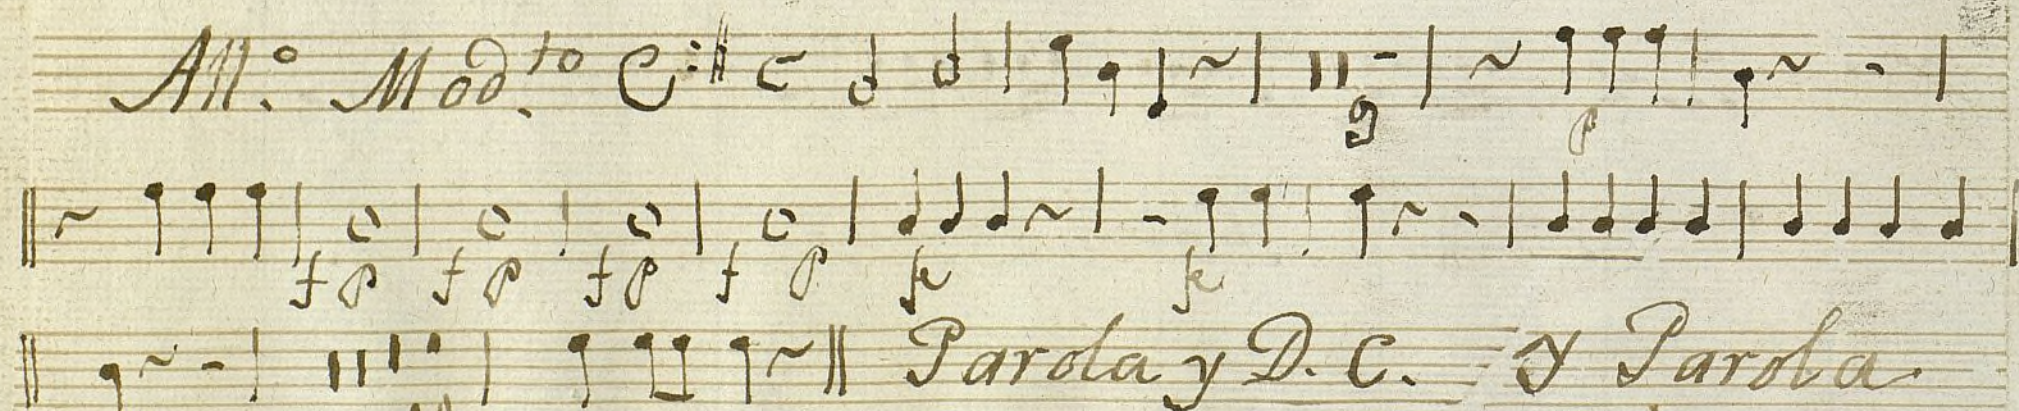 All.º Mod.to
9
p
f p f p f p f p fe fe
Parola y D. C. y Parola